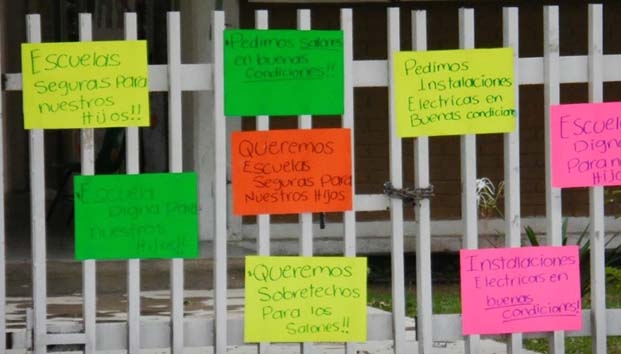 Escuelas
Seguras Para
nuestros
Hijos!!
Pedimos Salones
en buenas
condiciones!!
Pedimos
Instalaciones
Electricas en
Buenas condicione
Escuel
Digna
Para n
Hijo
Queremos
Escuelas
Seguras Para
Nuestros Hijos
Escuela
Digna Para
nuestros
Hijos!!
Queremos
Sobretechos
Para los
Salones!!
Instalaciones
Electricas en
buenas
condiciones!